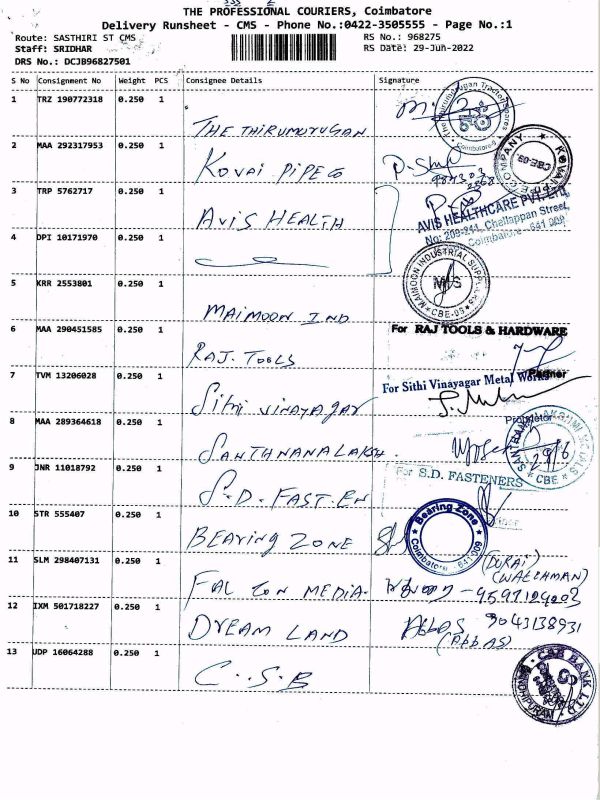 THE PROFESSIONAL COURIERS, Coimbatore
Delivery Runsheet - CMS - Phone No.:0422-3505555 - Page No.:1
Route: SASTHIRI ST CMS
RS No.: 968275
Staff: SRIDHAR
RS Date: 29-Jun-2022
DRS No.: DCJB96827501
S No Consignment No Weight PCS Consignee Details Signature
1 TRZ 190772318 0.250 1
THE THIRUMURUGAN
2 MAA 292317953 0.250 1
KOVAI PIPE CO
3 TRP 5762717 0.250 1
AVIS HEALTH
AVIS HEALTHCARE PVT. LTD.
No: 209-211, Chellappan Street,
Coimbatore - 641 009
4 DPI 10171970 0.250 1
5 KRR 2553801 0.250 1
MAIMOON IND
MAIMOON INDUSTRIAL SUPPLIERS
M/S
CBE-09
6 MAA 290451585 0.250 1
RAJ. TOOLS
For RAJ TOOLS & HARDWARE
Partner
7 TVM 13206028 0.250 1
Sithi VINAYAGAR
For Sithi Vinayagar Metal Works
Proprietor
8 MAA 289364618 0.250 1
SANTHNANALAKSH.
29/6
CBE
9 JNR 11018792 0.250 1
S.D. FAST.EN
For S.D. FASTENERS
10 STR 555407 0.250 1
BEARING ZONE
Bearing Zone
Coimbatore - 641 009
11 SLM 298407131 0.250 1
FALCON MEDIA.
(DURAI)
(WATCHMAN)
12 IXM 501718227 0.250 1
DREAM LAND
9043138931
(ABBAS)
13 UDP 16064288 0.250 1
C.S.B
CSB BANK LTD